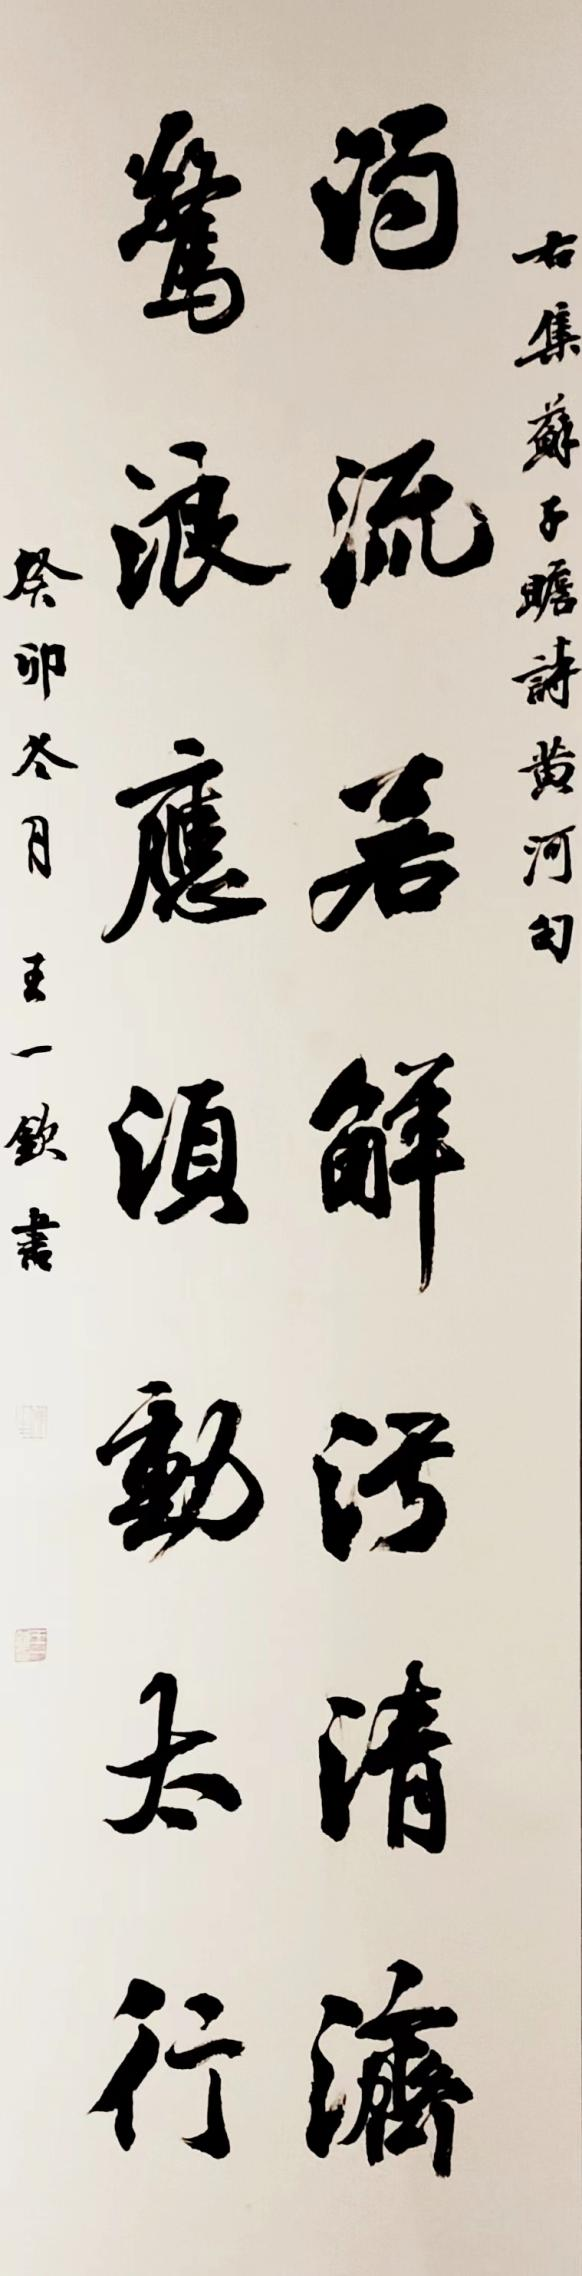 右集蘇子瞻詩黄河句
濁流若解污清濟
驚浪應須動太行
癸卯冬月 王一欽書